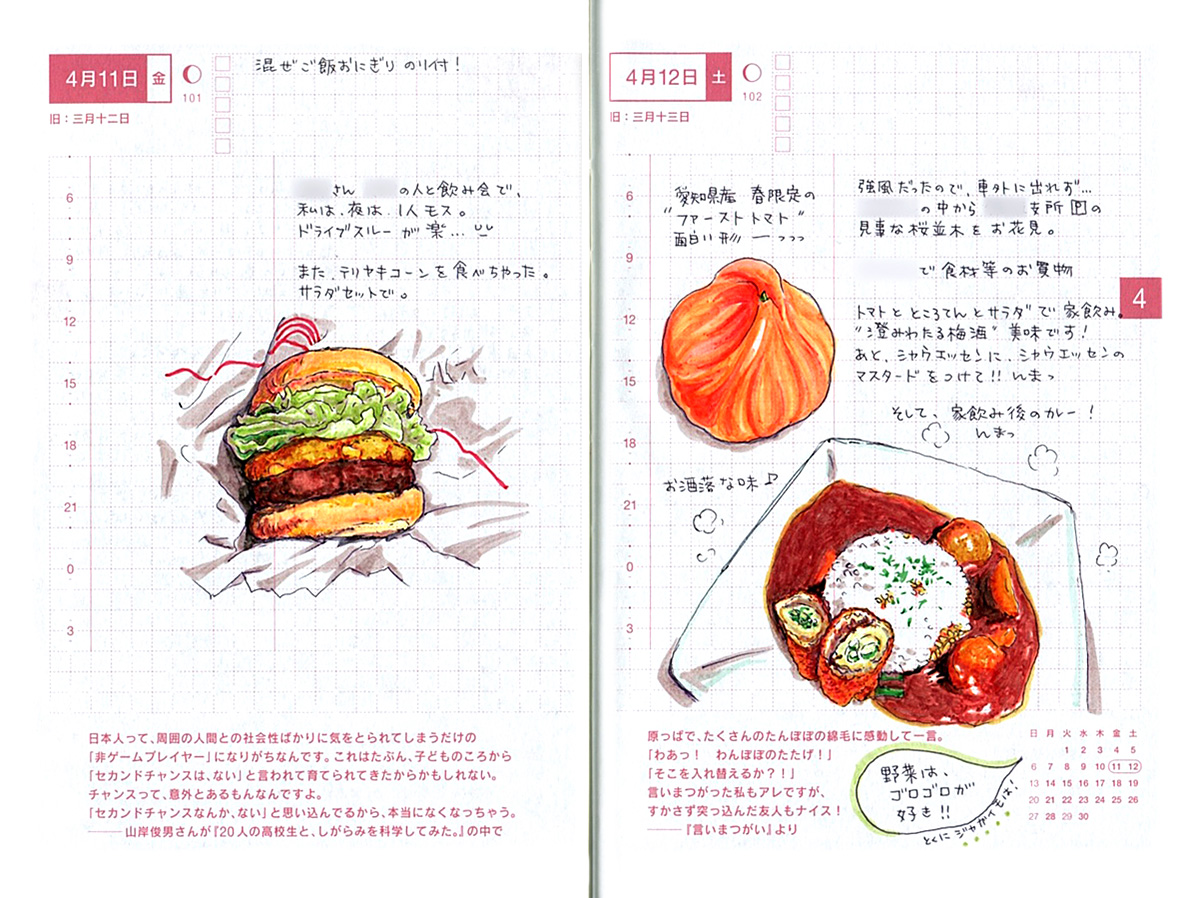 4月11日 金
101
旧：三月十二日
混ぜご飯おにぎり のり付！
さん の人と飲み会で、
私は、夜は、1人モス。
ドライブスルー が 楽…
また、テリヤキコーンを食べちゃった。
サラダセットで。
6
9
12
15
18
21
0
3
日本人って、周囲の人間との社会性ばかりに気をとられてしまうだけの
「非ゲームプレイヤー」になりがちなんです。これはたぶん、子どものころから
「セカンドチャンスは、ない」と言われて育てられてきたからかもしれない。
チャンスって、意外とあるもんなんですよ。
「セカンドチャンスなんか、ない」と思い込んでるから、本当になくなっちゃう。
――山岸俊男さんが『20人の高校生と、しがらみを科学してみた。』の中で
4月12日 土
102
旧：三月十三日
愛知県産 春限定の
"ファーストトマト"
面白い形 ーっっっ
強風だったので、車外に出れず…
の中から 支所 Pの
見事な桜並木を お花見。
で食材等のお買物
トマトとところてんとサラダで家飲み。
"澄みわたる梅酒" 美味です！
あと、シャウエッセンに、シャウエッセンの
マスタードをつけて!! んまっ
そして、家飲み後のカレー！
んまっ
お洒落な味♪
6
9
12
15
18
21
0
3
4
原っぱで、たくさんのたんぽぽの綿毛に感動して一言。
「わあっ！　わんぽぽのたたげ！」
「そこを入れ替えるか？！」
言いまつがった私もアレですが、
すかさず突っ込んだ友人もナイス！
――『言いまつがい』より
野菜は、
ゴロゴロが
好き!!
とくにジャガイモは！
日 月 火 水 木 金 土
1 2 3 4 5
6 7 8 9 10 11 12
13 14 15 16 17 18 19
20 21 22 23 24 25 26
27 28 29 30